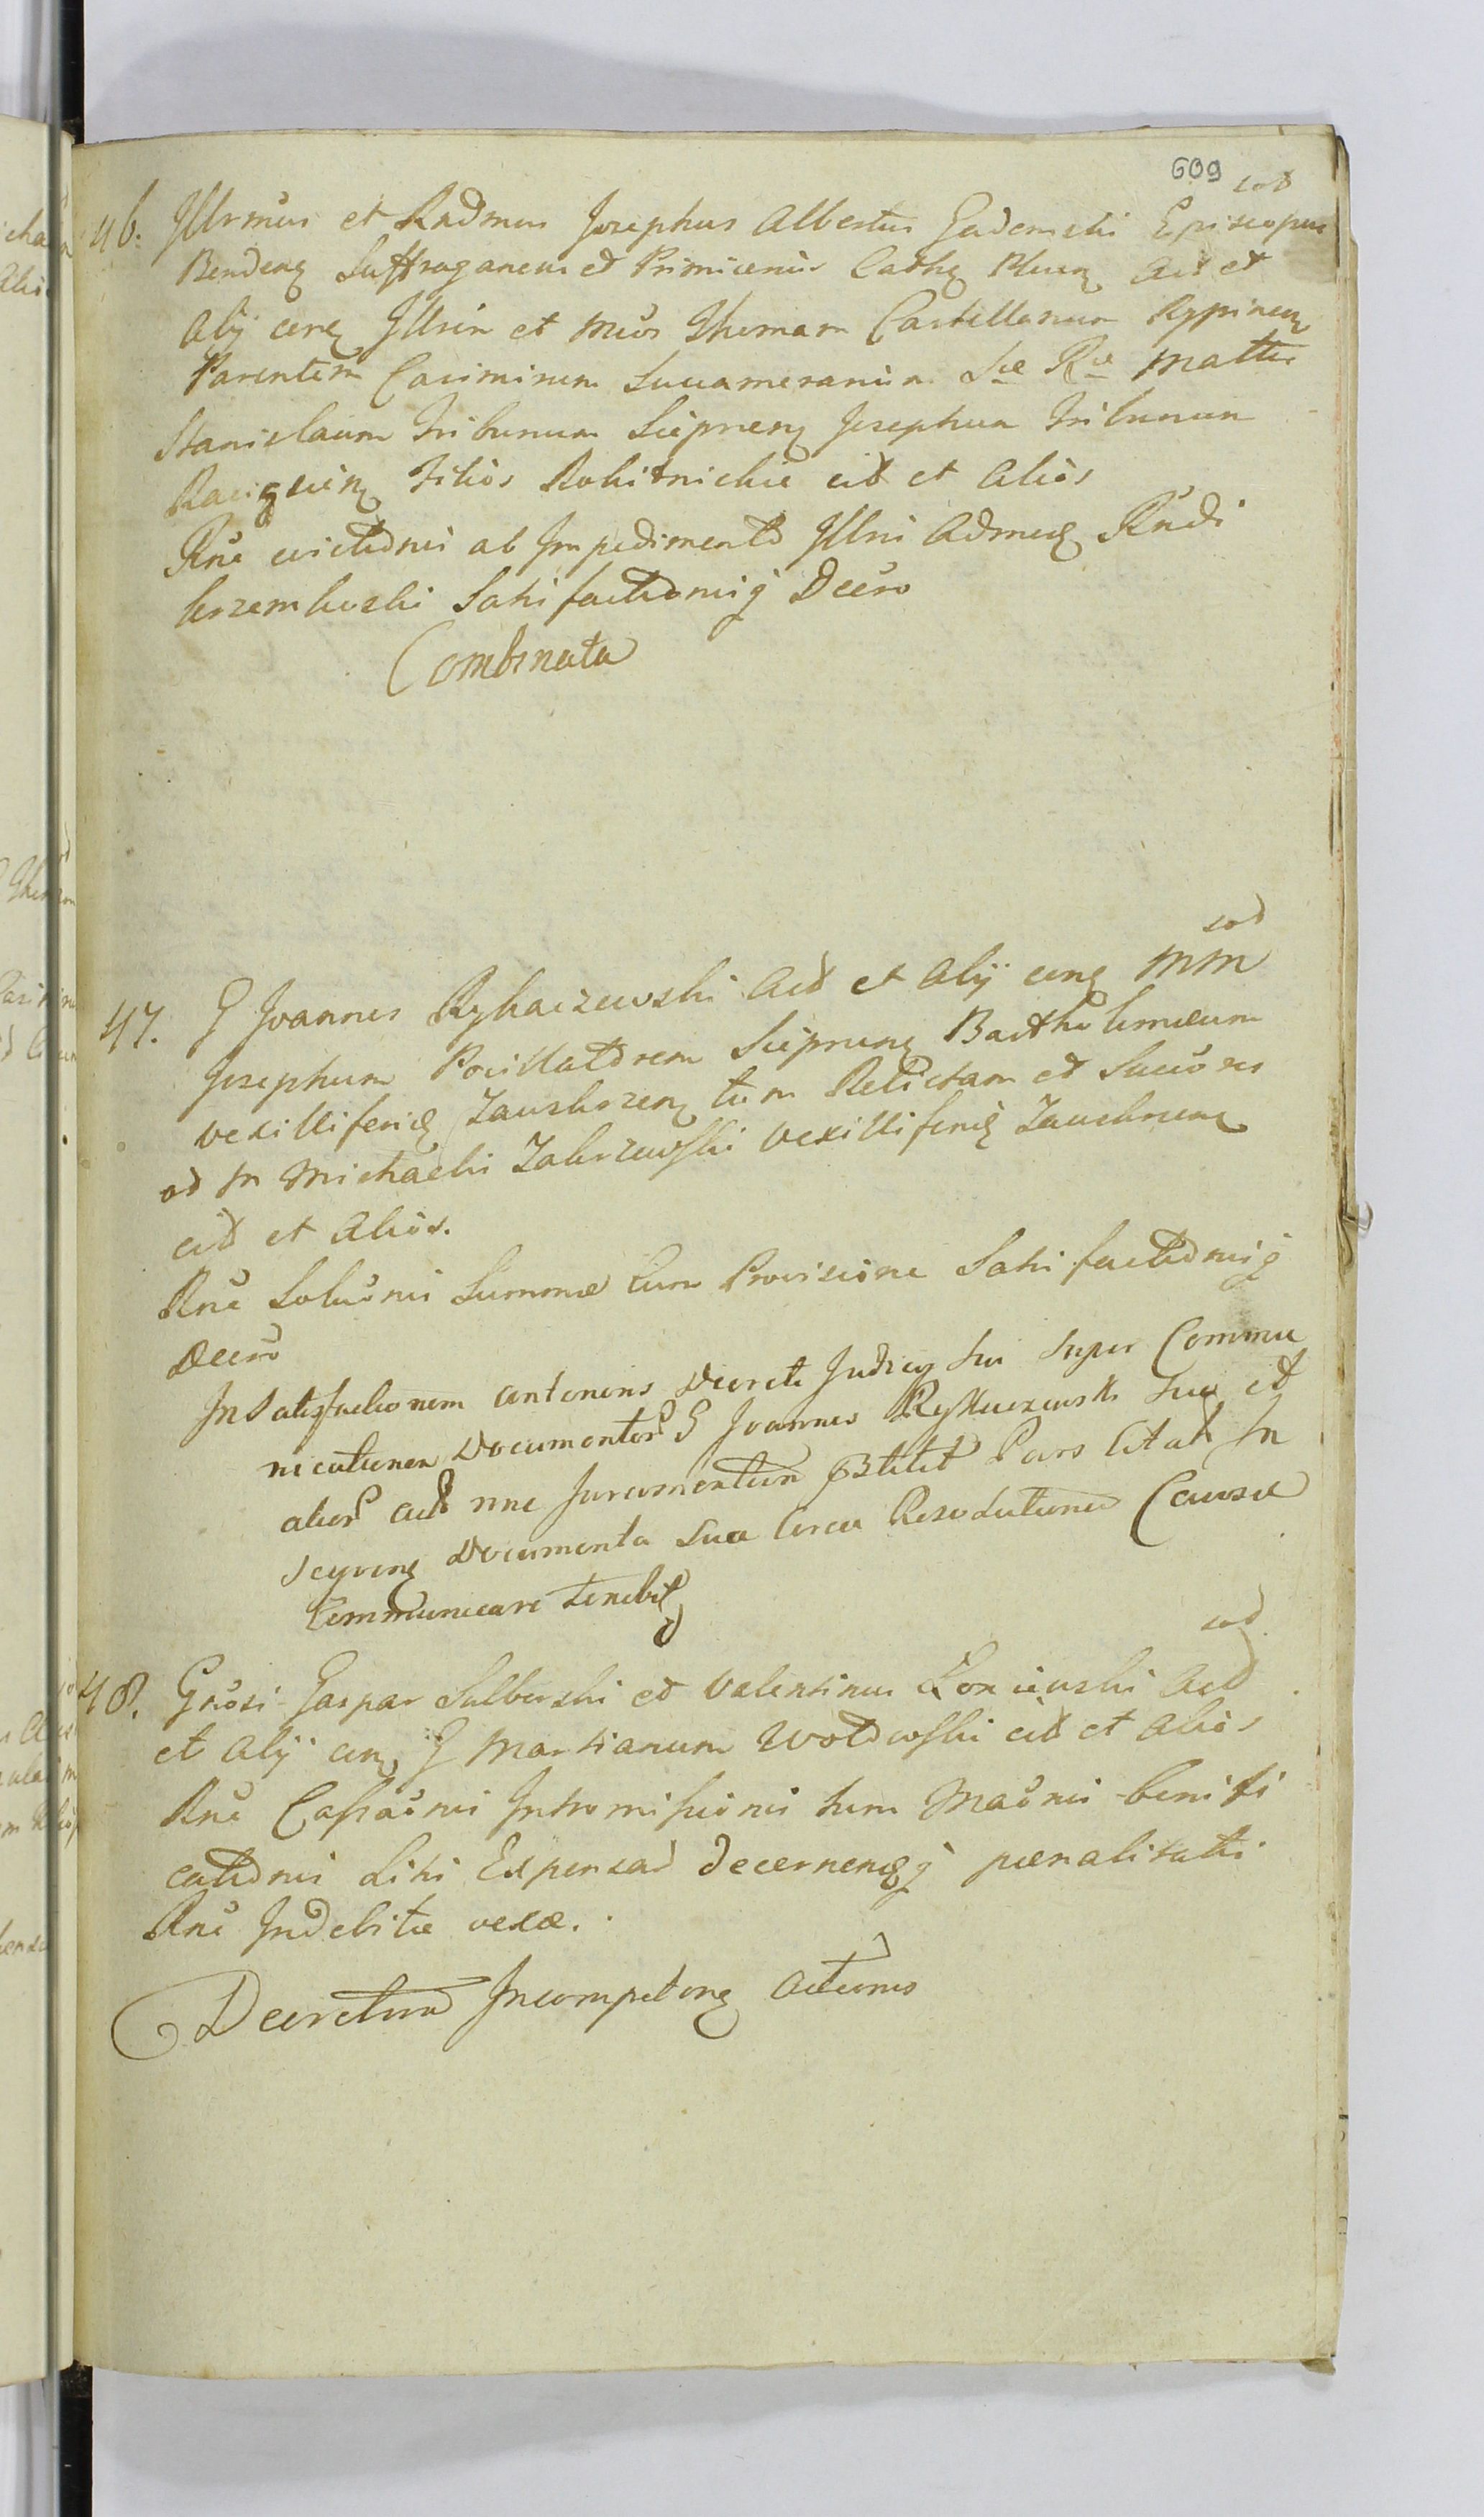 609
eod
46. Jllrmus et Rndmus Josephus Albertus Gademski Episcopus
Bendenq Suffraganeus et Primicerius Cathq Plocenq act et
Alij cenq Jllrem et Mcos Thomam Castellanum Rypinenq
Parentem Casimirum Succamerarium Sæ Ræ Mattis
Stanislaum Tribunum Sieprcenq Josephum Tribunum
Raciązienq Filios Rokitnickie cit et Alios
Rne evictionis ab Jmpedimento Jllris Admq Rndi
Krzemboski Satisfactionisq Decro
Combinata
eod
47. G Joannes Rykaczewski Act et Alij cenq MM
Josephum Pocillatorem Sieprcenq Bartholomæum
vexilliferiq Zawskrzenq tum Relictam et Succores
od M Michaelis Zakrzewski vexilliferiq Zawskrzenq
cit et Alios.
Rne Soluonis Summæ Cum Provisione Satisfactionisq
Decro
In Satisfactionem antenoris Decreti Judicij sui super Commu
nicationem Documentor G Joannes Rykaczewski sua et
alior act nne Juramentum pstitit Pars Citat In
sequenq Documenta sua Circa Resolutionem Causæ
Communicare tenebit
eod
48. Gnosi Gaspar Sulberski et Valentinus Łoniewski Act
et Alij cenq G Martianum Wołowski cit et Alios
Rne Cassaonis Intromissionis tum Maonis benifi
cationis Litis Expensar decernenqq pœnalitatis
Rne Indebitæ vexæ.
Decretum Incompetenq Actionis